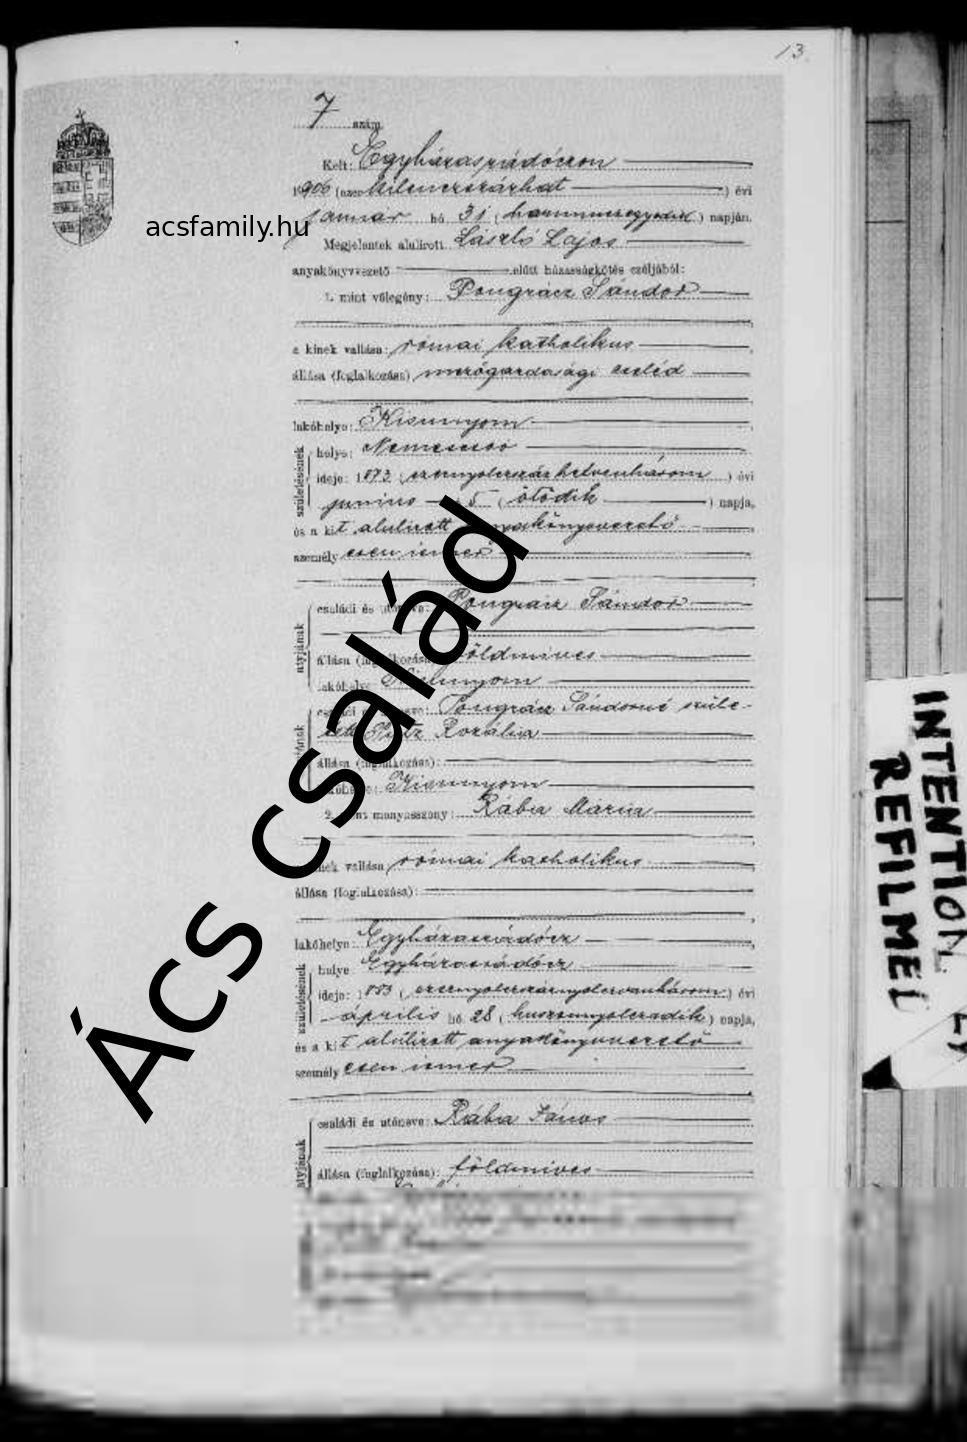 13
7 szám
Kelt: Egyházasrádóczon
1906 (ezer kilenczszázhat) évi
január hó 31 (harminczegyedik) napján.
acsfamily.hu
Megjelentek alulirott László Lajos
anyakönyvvezető előtt házasságkötés czéljából:
1. mint vőlegény: Pongrácz Sándor
a kinek vallása: római katholikus
állása (foglalkozása) mezőgazdasági cseléd
lakóhelye: Kisunyom
születésének
helye: Nemescsoó
ideje: 1873 (ezernyolczszáz hetvenhárom) évi
junius 5 (ötödik) napja,
és a kit alulirott anyakönyvvezető
személyesen ismer
atyjának
családi és utóneve: Pongrácz Sándor
állása (foglalkozása) földmives
lakóhelye Kisunyom
családi utóneve: Pongrácz Sándorné szüle-
tett Rozália
állása (foglalkozása):
lakóhelye: Kisunyom
2. mint menyasszony: Rába Mária
kinek vallása: római katholikus
állása (foglalkozása):
lakóhelye: Egyházasrádócz
születésének
helye Egyházasrádócz
ideje: 1883 (ezernyolczszáznyolczvanhárom) évi
április hó 28 (husznnyolczadik) napja,
és a kit alulirott anyakönyvvezető
személyesen ismer
atyjának
családi és utóneve: Rába János
állása (foglalkozása): földmives
Ács család
INTENTION
REFILMED